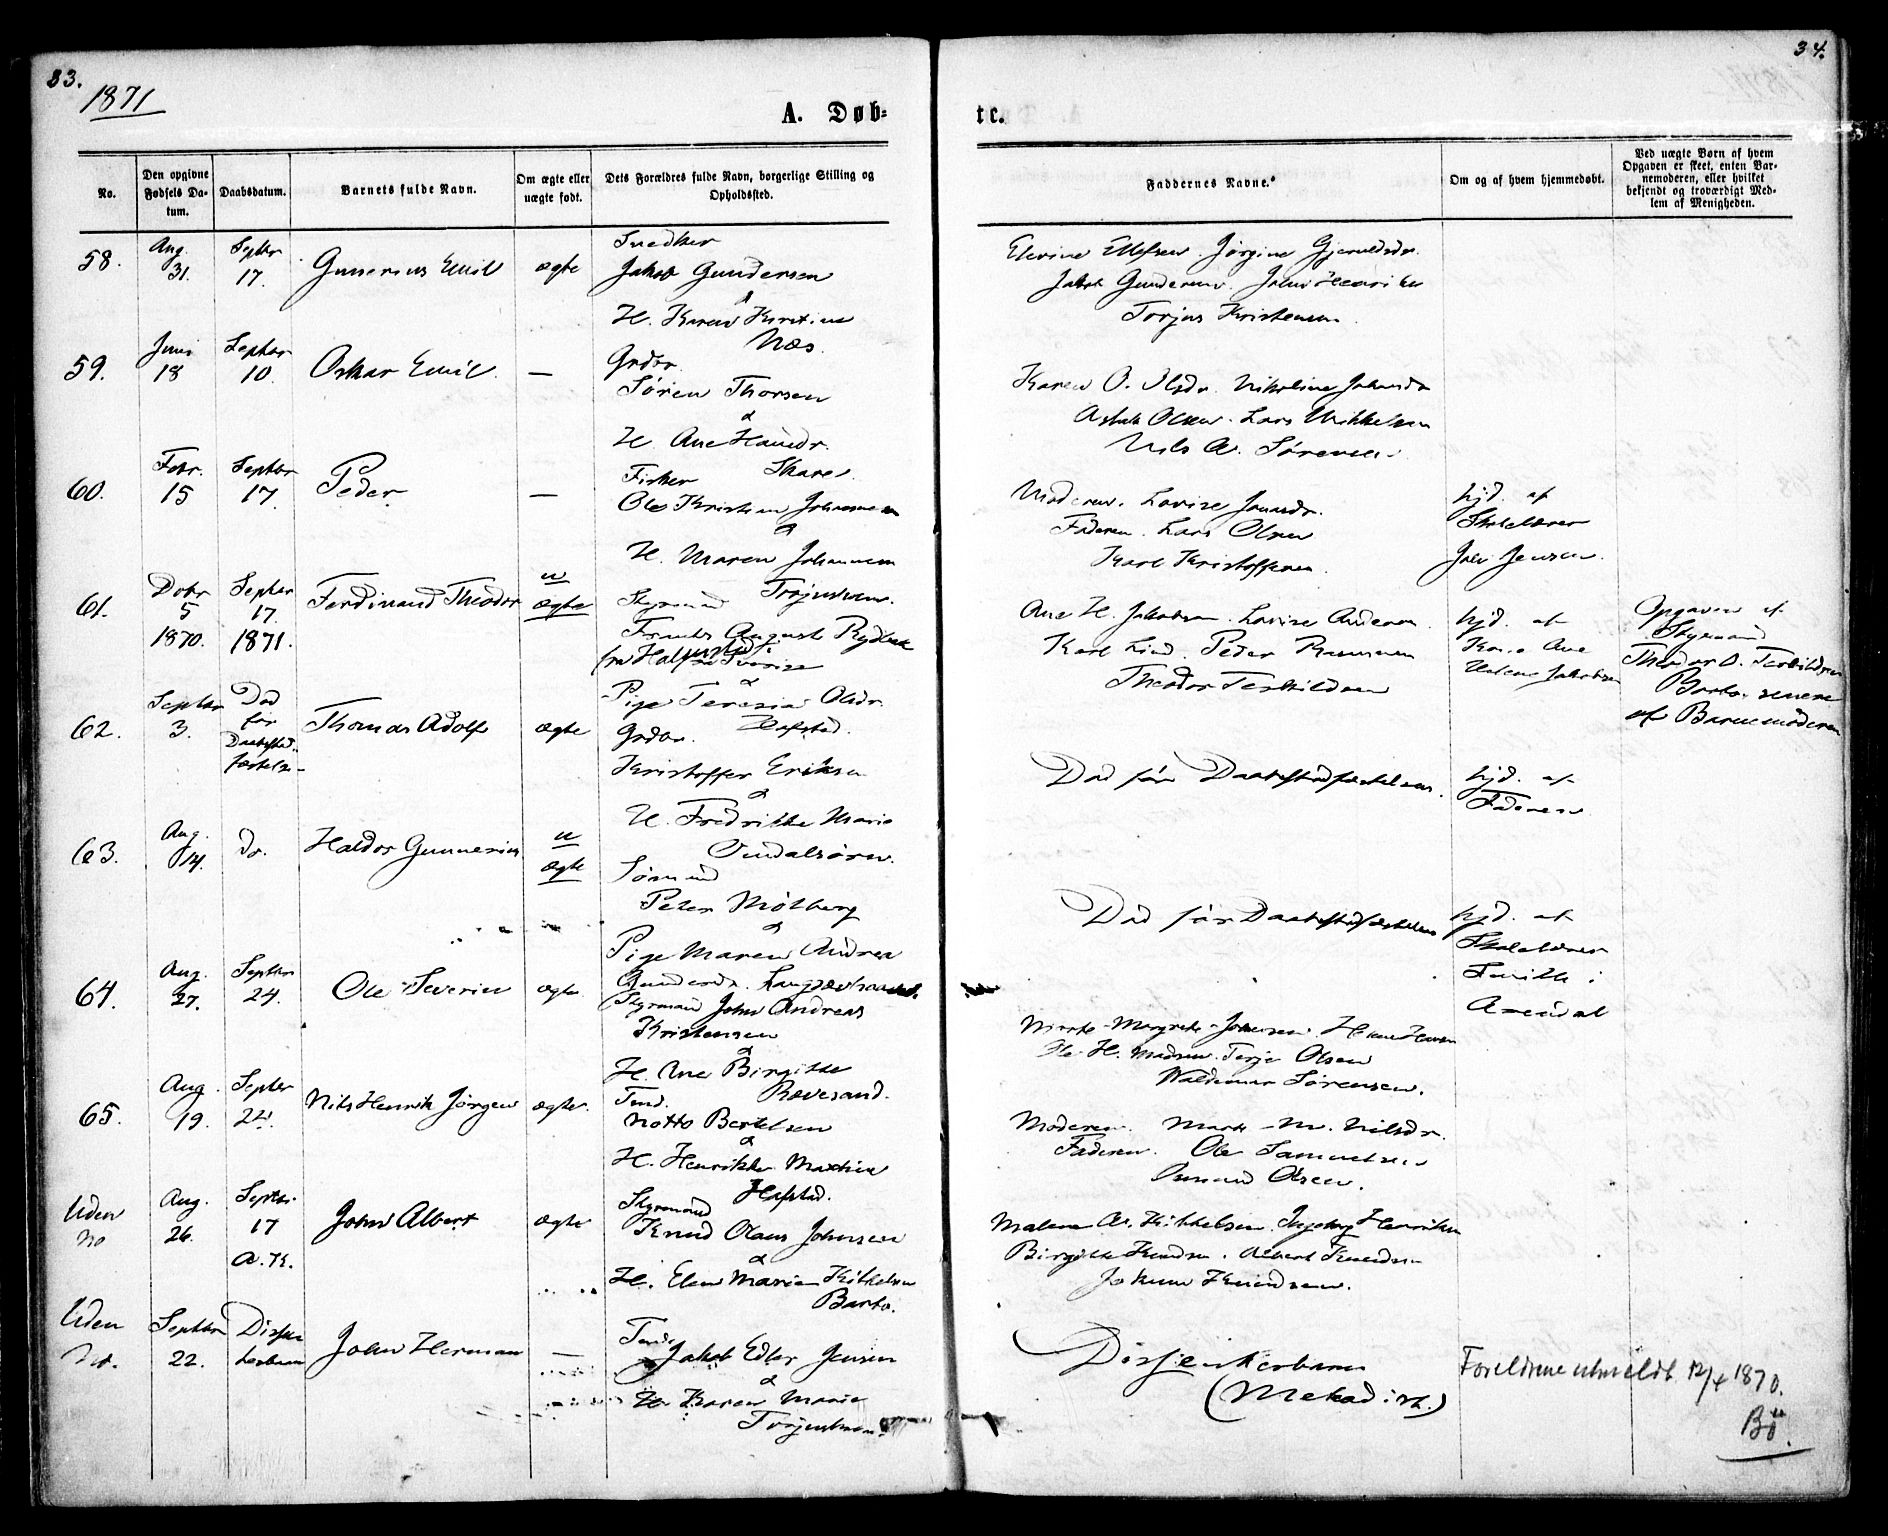 33.
1871
A. Døb-
No.
Den opgivne Fødsels Da-tum.
Daabsdatum.
Barnets fulde Navn.
Om ægte eller uægte født.
Dets Forældres fulde Navn, borgerlige Stilling og Opholdssted.
58.
Aug. 31.
Septbr 17.
Gunerius Emil
ægte
Snedker
Jakob Gundersen
&
H. Karen Kirstine
Næs.
59.
Juni 18
Septbr 10.
Oskar Emil
—
Grdbr.
Søren Thorsen
&
H. Ane Hansdr.
Skare
60.
Febr. 15
Septbr 17.
Peder
—
Fisker
Ole Kristian Johannesen
&
H. Maren Johannesen
61.
Dcbr 5 1870.
Septbr 17. 1871.
Ferdinand Theodor
u
ægte
Styrmand
August Rydbeck
&
Pige Teresia Olsdr.
Hafsted.
62.
Septbr 3.
Død før Daabsstad-fæstelse
Thomas Adolf
ægte
Grdbr.
Kristoffer Eriksen
&
H. Fredrikke Marie
63.
Aug. 14.
Do.
Haldor Gunnerius
u
ægte
Sømand
Peter Molberg
&
Pige Maren Andrea
64.
Aug. 27.
Septbr 24.
Ole Severin
ægte
Styrmand John Andreas
Kristensen
&
H. Ane Birgitte
Rævesand.
65.
Aug. 19.
Septbr 24.
Nils Henrik Jørgen
ægte.
Tmd.
Notto Bertelsen
&
H. Henrikke Maxine
Hafsted.
Uden No
Aug. 26.
Septbr 17 A. K.
John Albert
ægte
Styrmand
Knud Olaus Johnsen
&
H. Elen Maria Kittelsen
Barbo.
Uden No.
Septbr 22.
John Herman
—
Jakob Edler Jensen
&
H. Karen Marie
34.
te.
Faddernes Navne.
Om og af hvem hjemmedøbt.
Ved uægte Børn af hvem
Opgaven er skeet, enten Bar-
nemoderen, eller hvilket
bekjendt og troværdigt Med-
lem af Menigheden.
Elevine Ellefsen. Jørgine Gjeruldsdr.
Jakob Gundersen. John Henriksen
Torjus Kristensen.
Karen O. Olsdr. Nikoline Johnsdr
Aslak Olsen. Lars Mikkelsen
Nils A. Sørensen.
Moderen. Lovise Jonasdr.
Faderen. Lars Olsen
Karl Kristoffersen.
hjd. af
Skolelærer
Joh. Jensen.
Ane H. Jakobsen. Lovise Andersen.
Karl Lind. Peder Rasmussen
Theodor Terkildsen
hjd. af
Kone Ane
Helene Jakobsen
Opgaven af
Styrmand
Theodor O. Terkildsen
Barbo, senere
af Barnemoderen
Død før Daabsstadfæstelsen.
hjd. af
Faderen
Død før Daabsstadfæstelsen
hjd. af
Skolelærer
i
Arendal
Ole H. Madsen. Terje Olsen
Waldemar Sørensen.
Moderen. Marte M. Nilsdr.
Faderen. Ole Samuelsen
Osmund Olsen.
Malene A. Kittelsen. Ingeborg Henriksen
Birgitte Knudsen. Albert Knudsen
Johan Knudsen.
Dissenterbarn
(Metodist.)
Forældrene udmeldt 12/4 1870.
Bö.